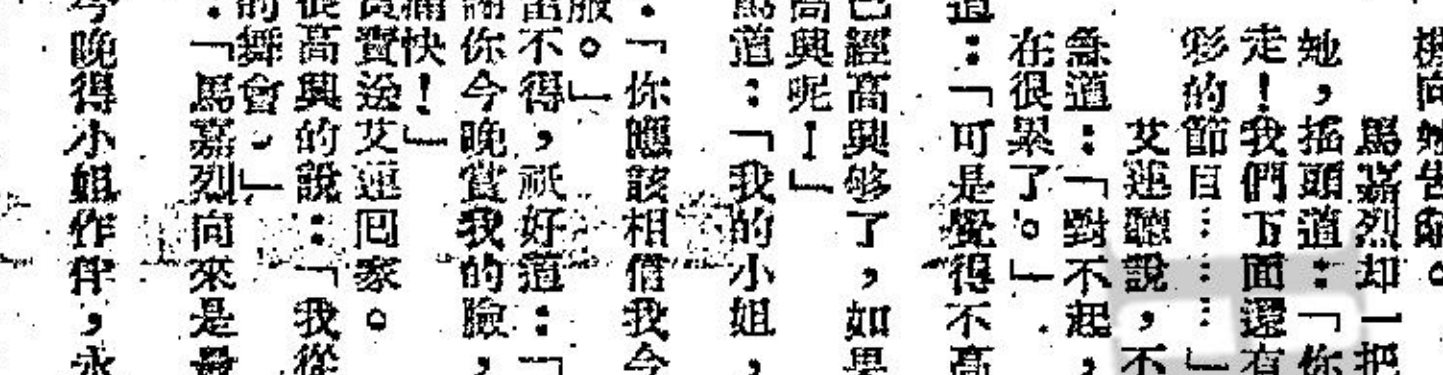 向她告辭。
馬嘉烈却一把
她，搖頭道：「你
走！我們下面還有
彩的節目……」
艾蓮聽說，不
急道：「對不起，
在很累了。」
道：「可是覺得不高
已經高興够了，如果
高興呢！」
罵道：「我的小姐，
：「你應該相信我今
服。」
留不得，祇好道：「
謝你今晚賞我的臉，
痛快！」
賓賓送艾蓮囘家。
很高興的說：「我從
的舞會，」
：「馬嘉烈向來是最
今晚得小姐作伴，永